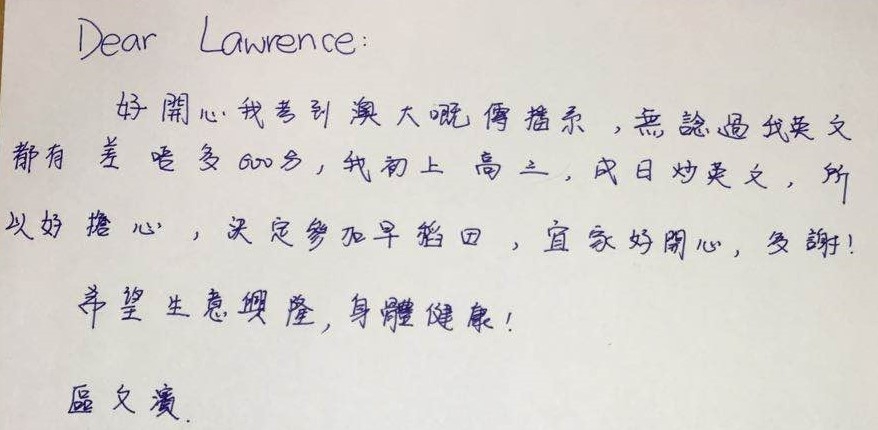 Dear Lawrence:
好開心我考到澳大嘅傳播系，無諗過我英文
都有差唔多600分，我初上高三，成日炒英文，所
以好擔心，決定參加早稻田，宜家好開心，多謝！
希望生意興隆，身體健康！
區文濱.